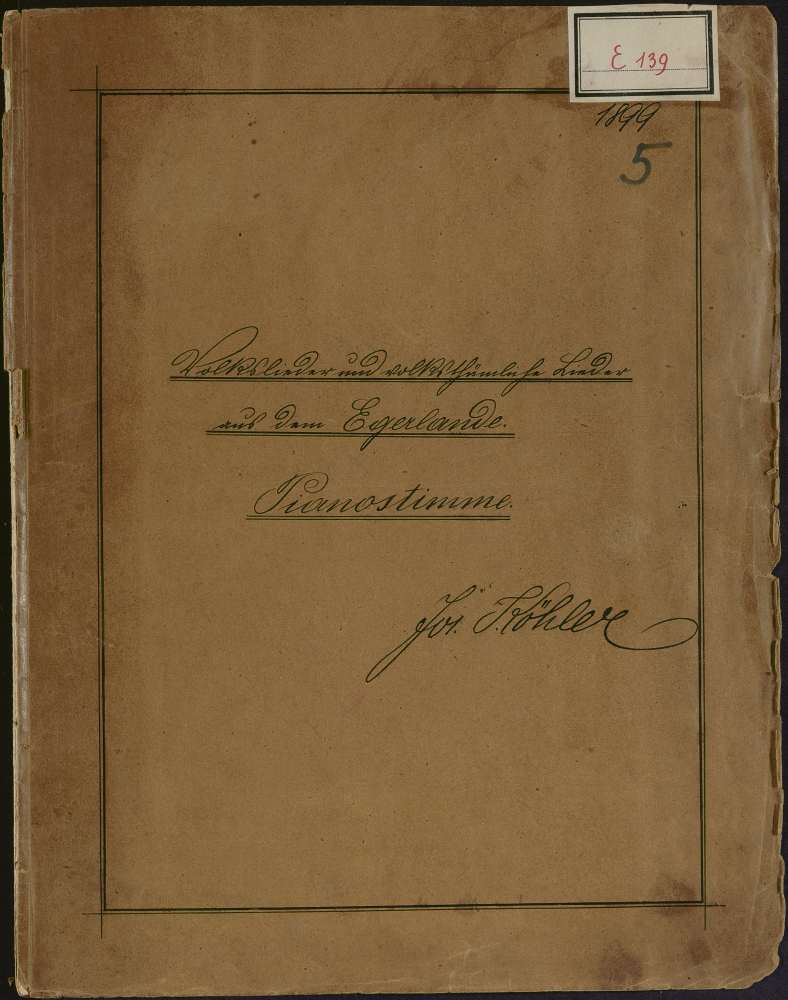 E 139
1899
5
Volkslieder und volksthümliche Lieder
aus dem Egerlande.
Pianostimme.
Jos. Köhler